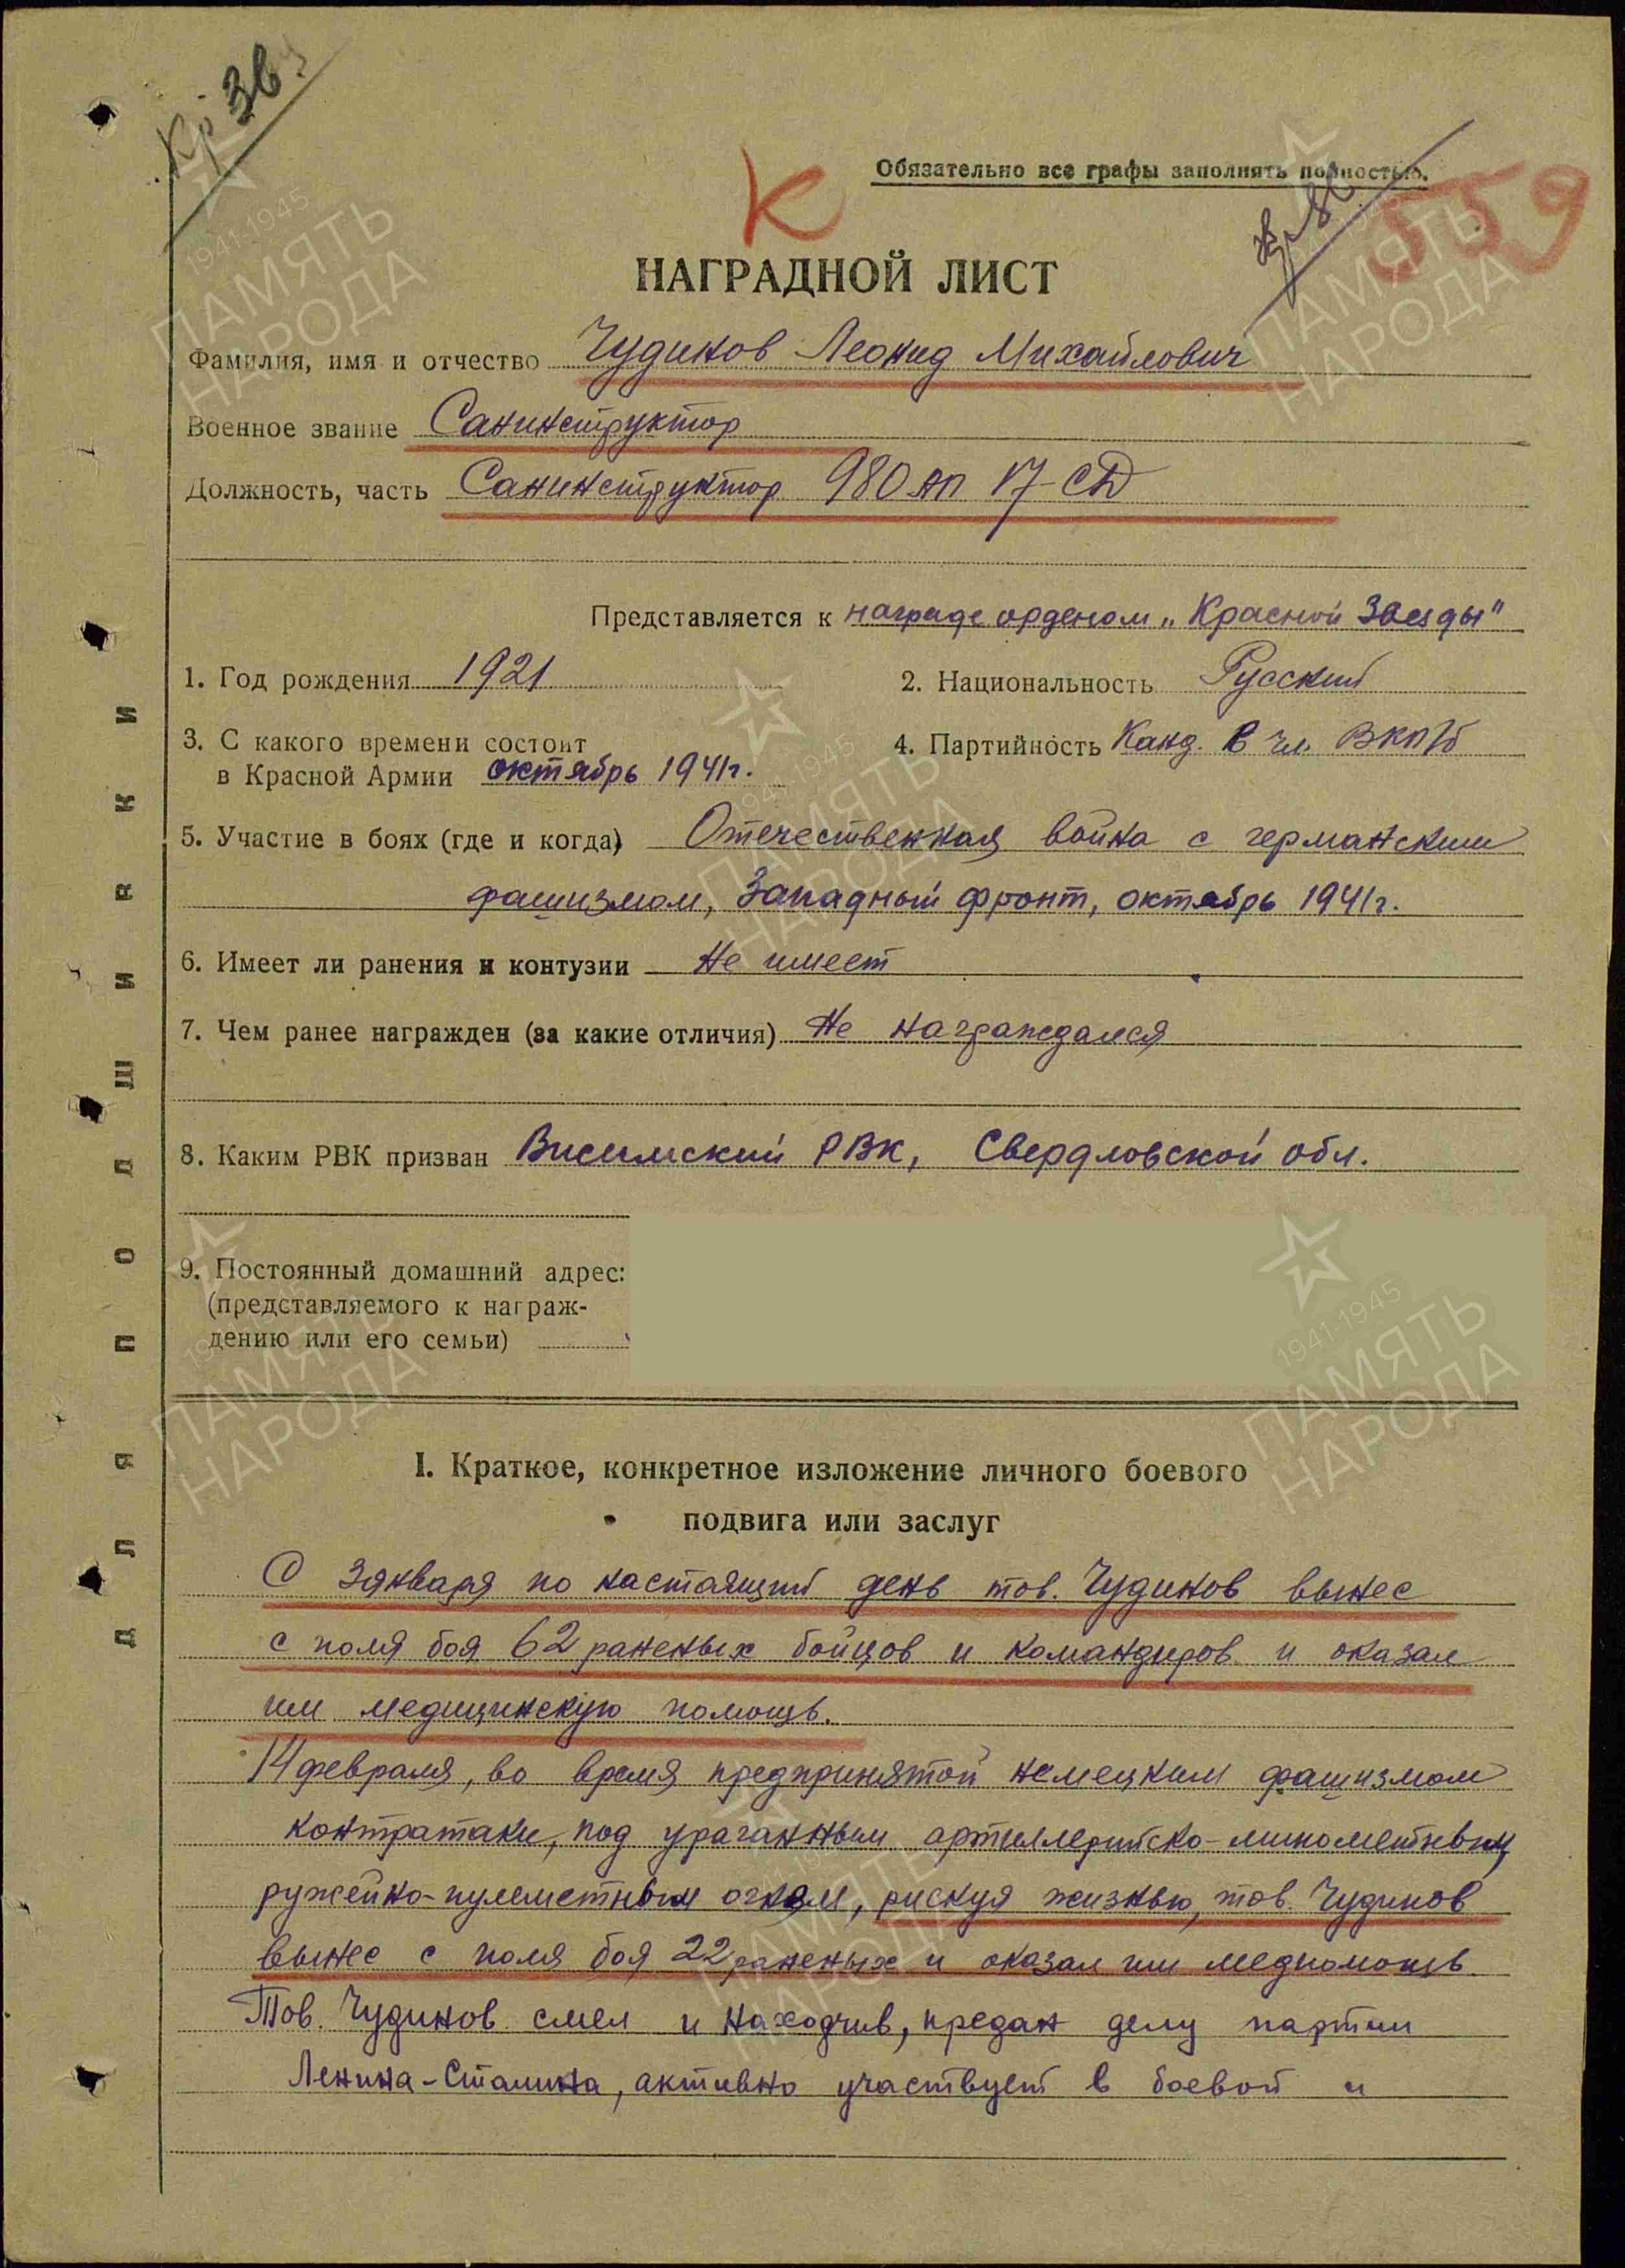 Кр Зв
К
Обязательно все графы заполнять полностью.
559
НАГРАДНОЙ ЛИСТ
Фамилия, имя и отчество Чудинов Леонид Михайлович
Военное звание Санинструктор
Должность, часть Санинструктор 980 АП 17 СД
Представляется к награде орденом „Красной Звезды"
1. Год рождения 1921
2. Национальность Русский
3. С какого времени состоит
в Красной Армии октябрь 1941г.
4. Партийность Канд. в чл. ВКП/б
5. Участие в боях (где и когда) Отечественная война с германским
фашизмом, Западный фронт, октябрь 1941г.
6. Имеет ли ранения и контузии Не имеет
7. Чем ранее награжден (за какие отличия) Не награждался
8. Каким РВК призван Висимский РВК, Свердловской обл.
9. Постоянный домашний адрес:
(представляемого к награж-
дению или его семьи)
I. Краткое, конкретное изложение личного боевого
подвига или заслуг
С 3 января по настоящий день тов. Чудинов вынес
с поля боя 62 раненых бойцов и командиров и оказал
им медицинскую помощь.
14 февраля, во время предпринятой немецким фашизмом
контратаки, под ураганным артиллерийско-минометным,
ружейно-пулеметным огнем, рискуя жизнью, тов. Чудинов
вынес с поля боя 22 раненых и оказал им медпомощь.
Тов. Чудинов смел и находчив, предан делу партии
Ленина-Сталина, активно участвует в боевой и
ДЛЯ ПОДШИВКИ
1941-1945
ПАМЯТЬ
НАРОДА
1941-1945
ПАМЯТЬ
НАРОДА
1941-1945
ПАМЯТЬ
НАРОДА
1941-1945
ПАМЯТЬ
НАРОДА
1941-1945
ПАМЯТЬ
НАРОДА
ПАМЯТЬ
НАРОДА